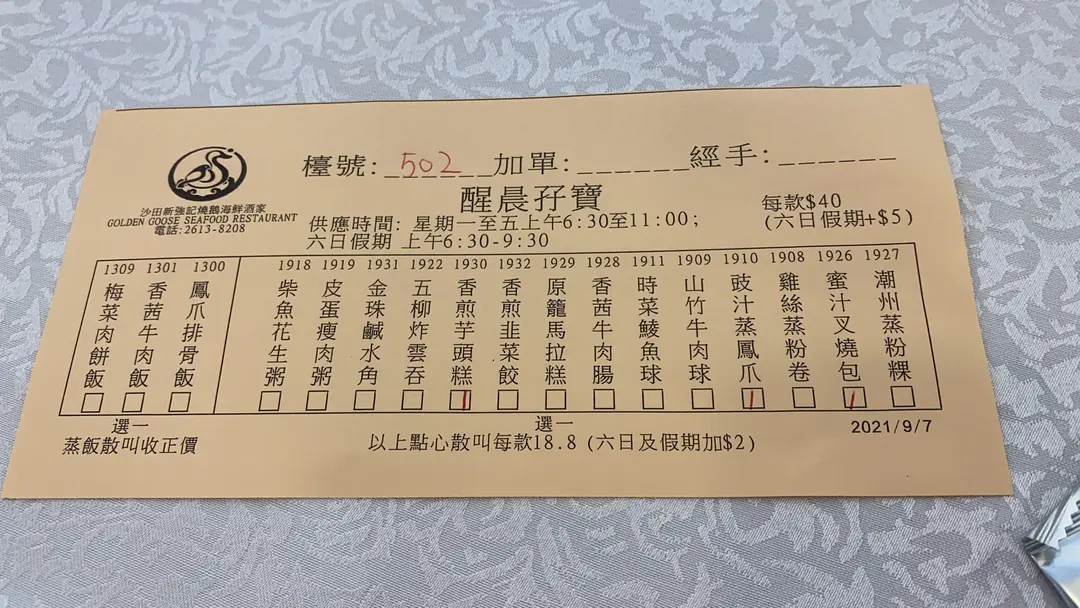 檯號: 502 加單: 經手:
醒晨孖寶
每款$40
(六日假期+$5)
沙田新強記燒鵝海鮮酒家
GOLDEN GOOSE SEAFOOD RESTAURANT
電話:2613-8208
供應時間: 星期一至五上午6:30至11:00;
六日假期 上午6:30-9:30
1309 梅菜肉餅飯
1301 香茜牛肉飯
1300 鳳爪排骨飯
1918 柴魚花生粥
1919 皮蛋瘦肉粥
1931 金珠鹹水角
1922 五柳炸雲吞
1930 香煎芋頭糕 1
1932 香煎韭菜餃
1929 原籠馬拉糕
1928 香茜牛肉腸
1911 時菜鯪魚球
1909 山竹牛肉球
1910 豉汁蒸鳳爪 1
1908 雞絲蒸粉卷
1926 蜜汁叉燒包 1
1927 潮州蒸粉粿
選一
選一
2021/9/7
蒸飯散叫收正價
以上點心散叫每款18.8 (六日及假期加$2)